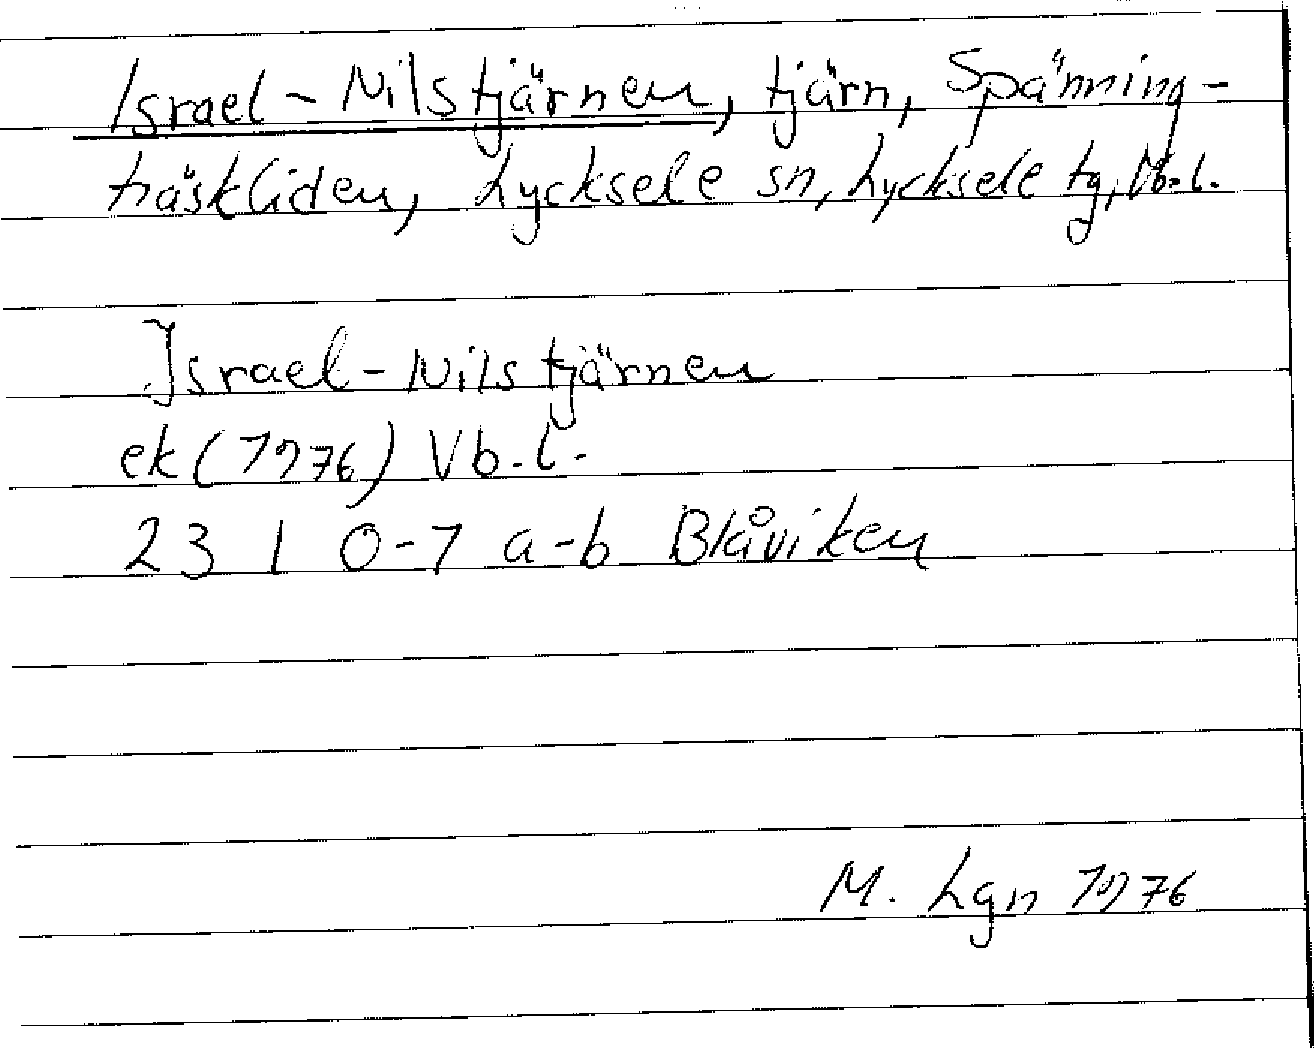 Israel-Nilstjärnen, tjärn, Spänning-
träskliden, Lycksele sn, Lycksele tg, Vb.l.
Israel-Nilstjärnen
ek (1976) Vb.l.
23 I 0-1 a-b Blåviken
M. Lgn 1976